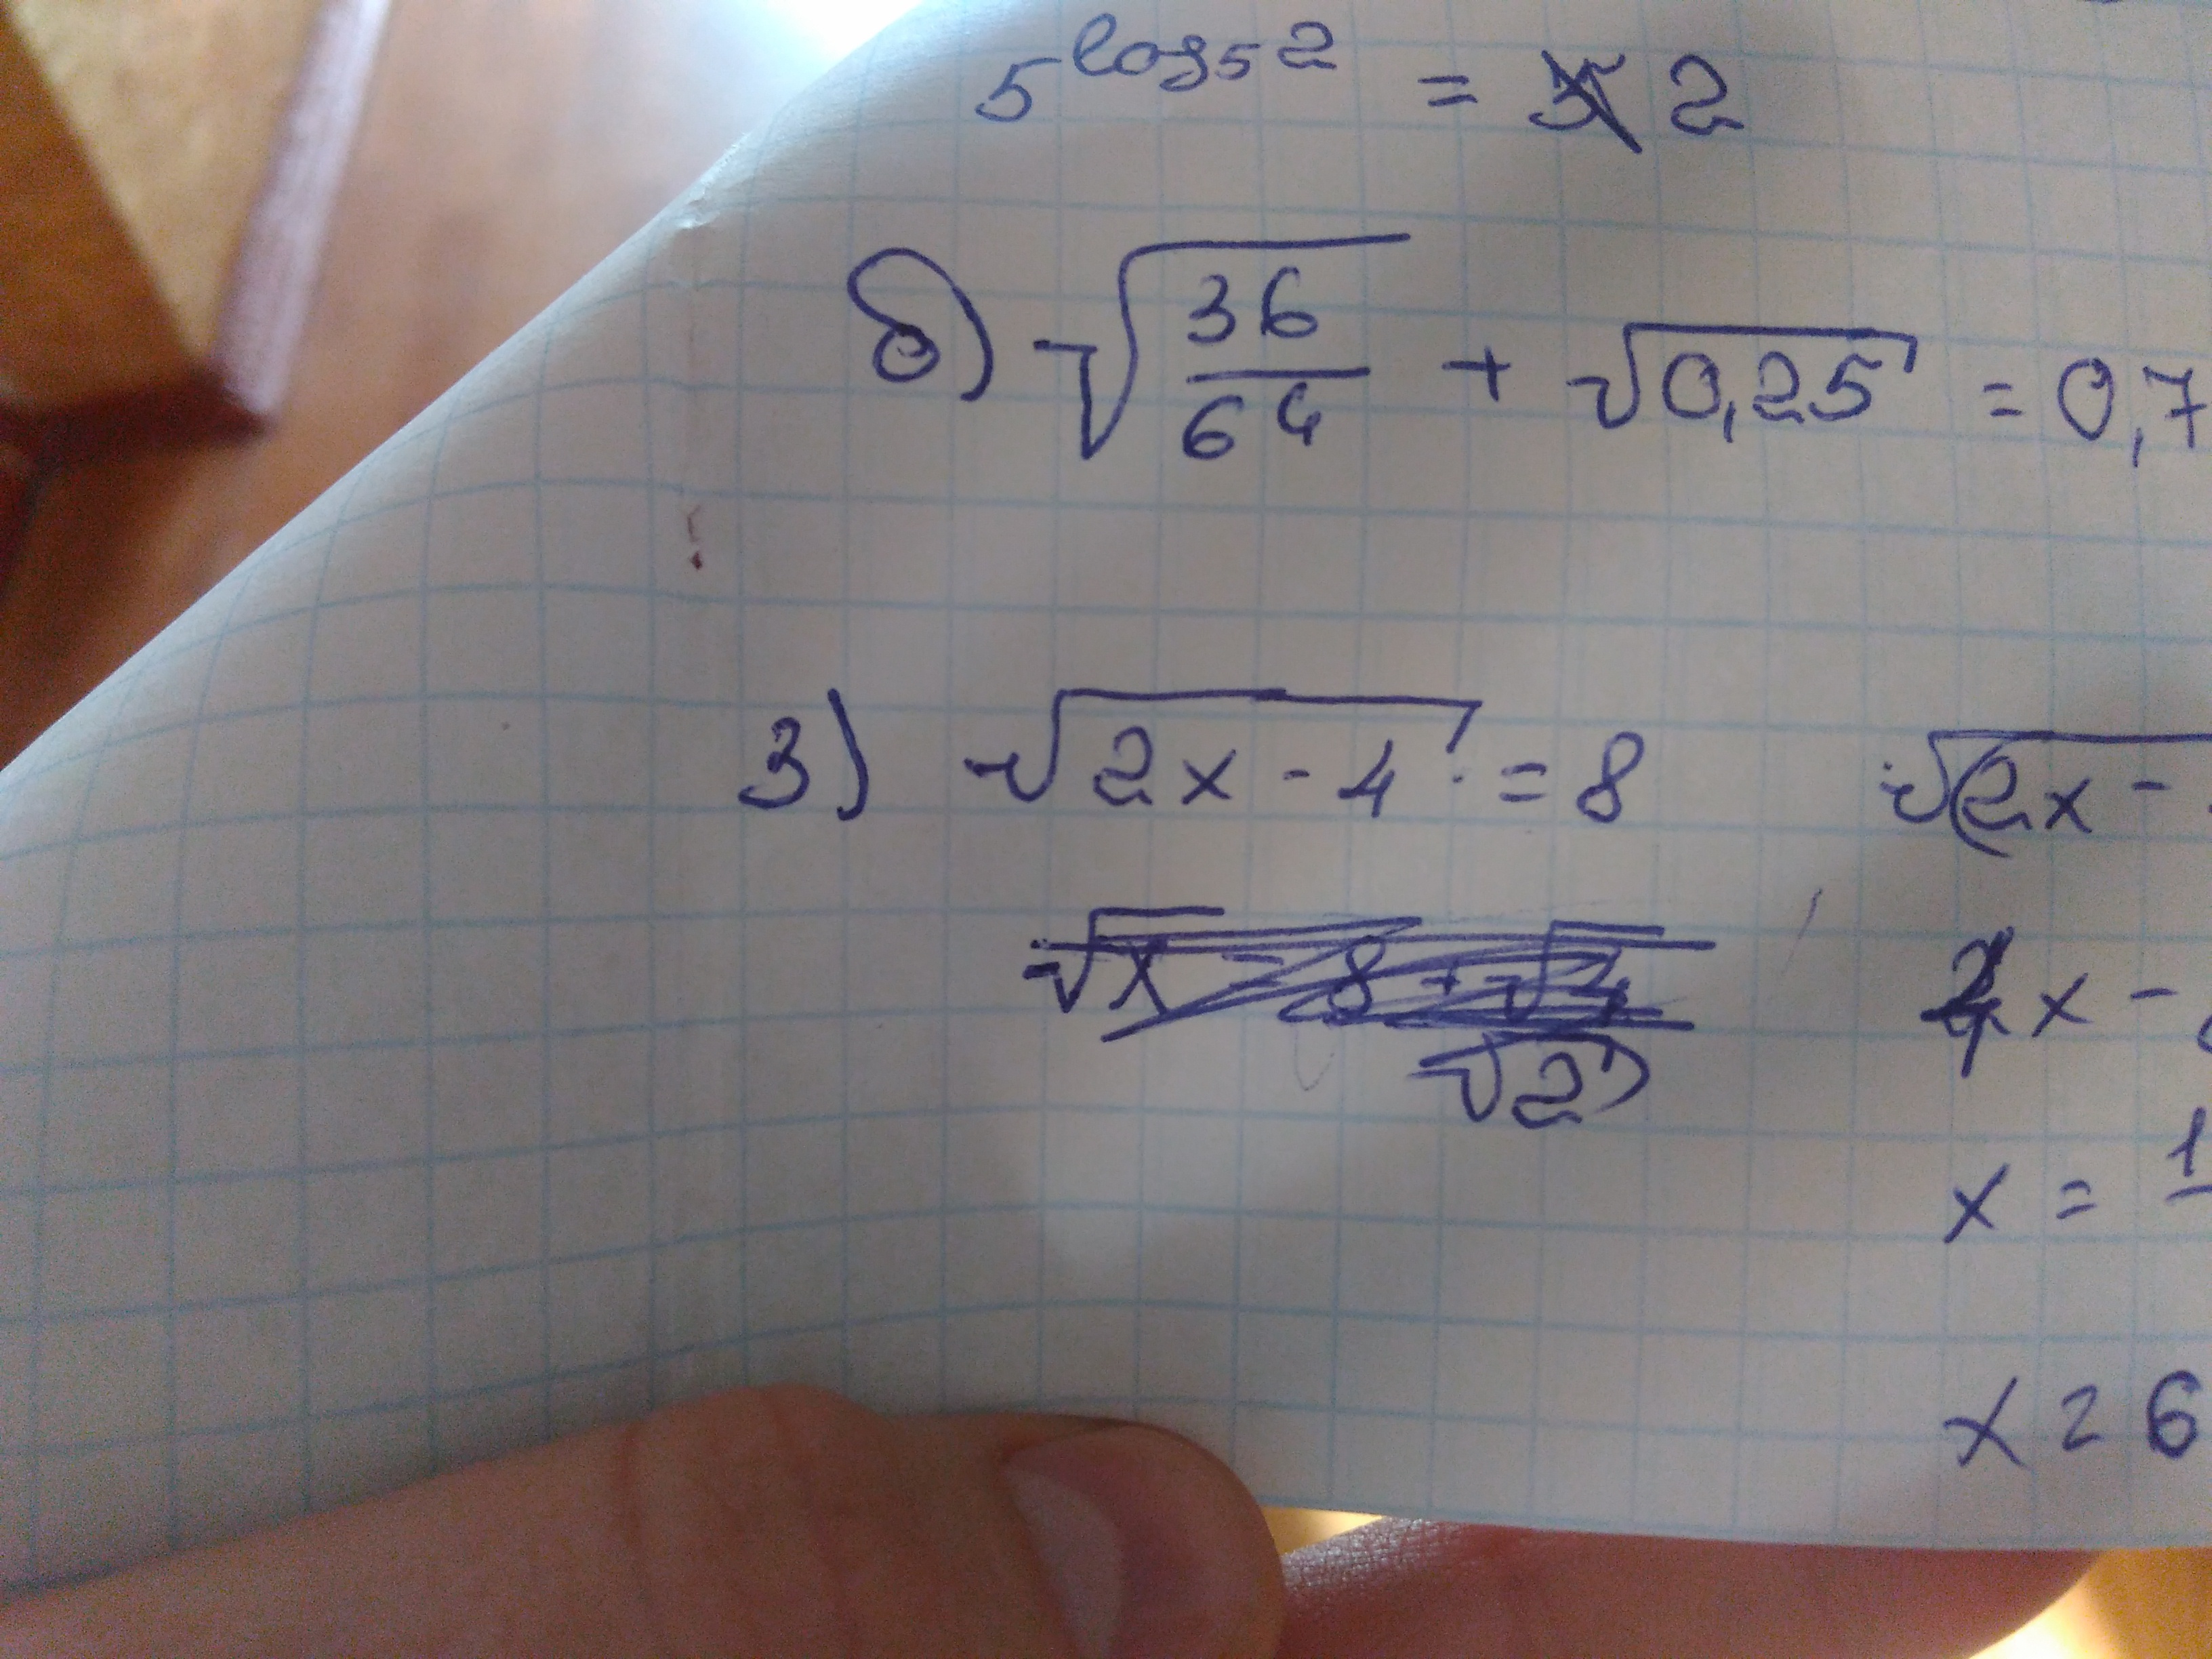 5^log₅2 = 2
б) √(36/64) + √0,25 = 0,7
3) √(2x - 4) = 8 √(2x -
√x = 8 + √4 / √2
2x -
x = 1
x = 6